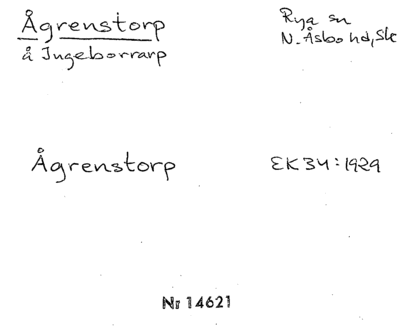 Ågrenstorp
å Ingeborrarp
Rya sn
N. Åsbo hd, Sk
Ågrenstorp
EK34:1929
Nr 14621